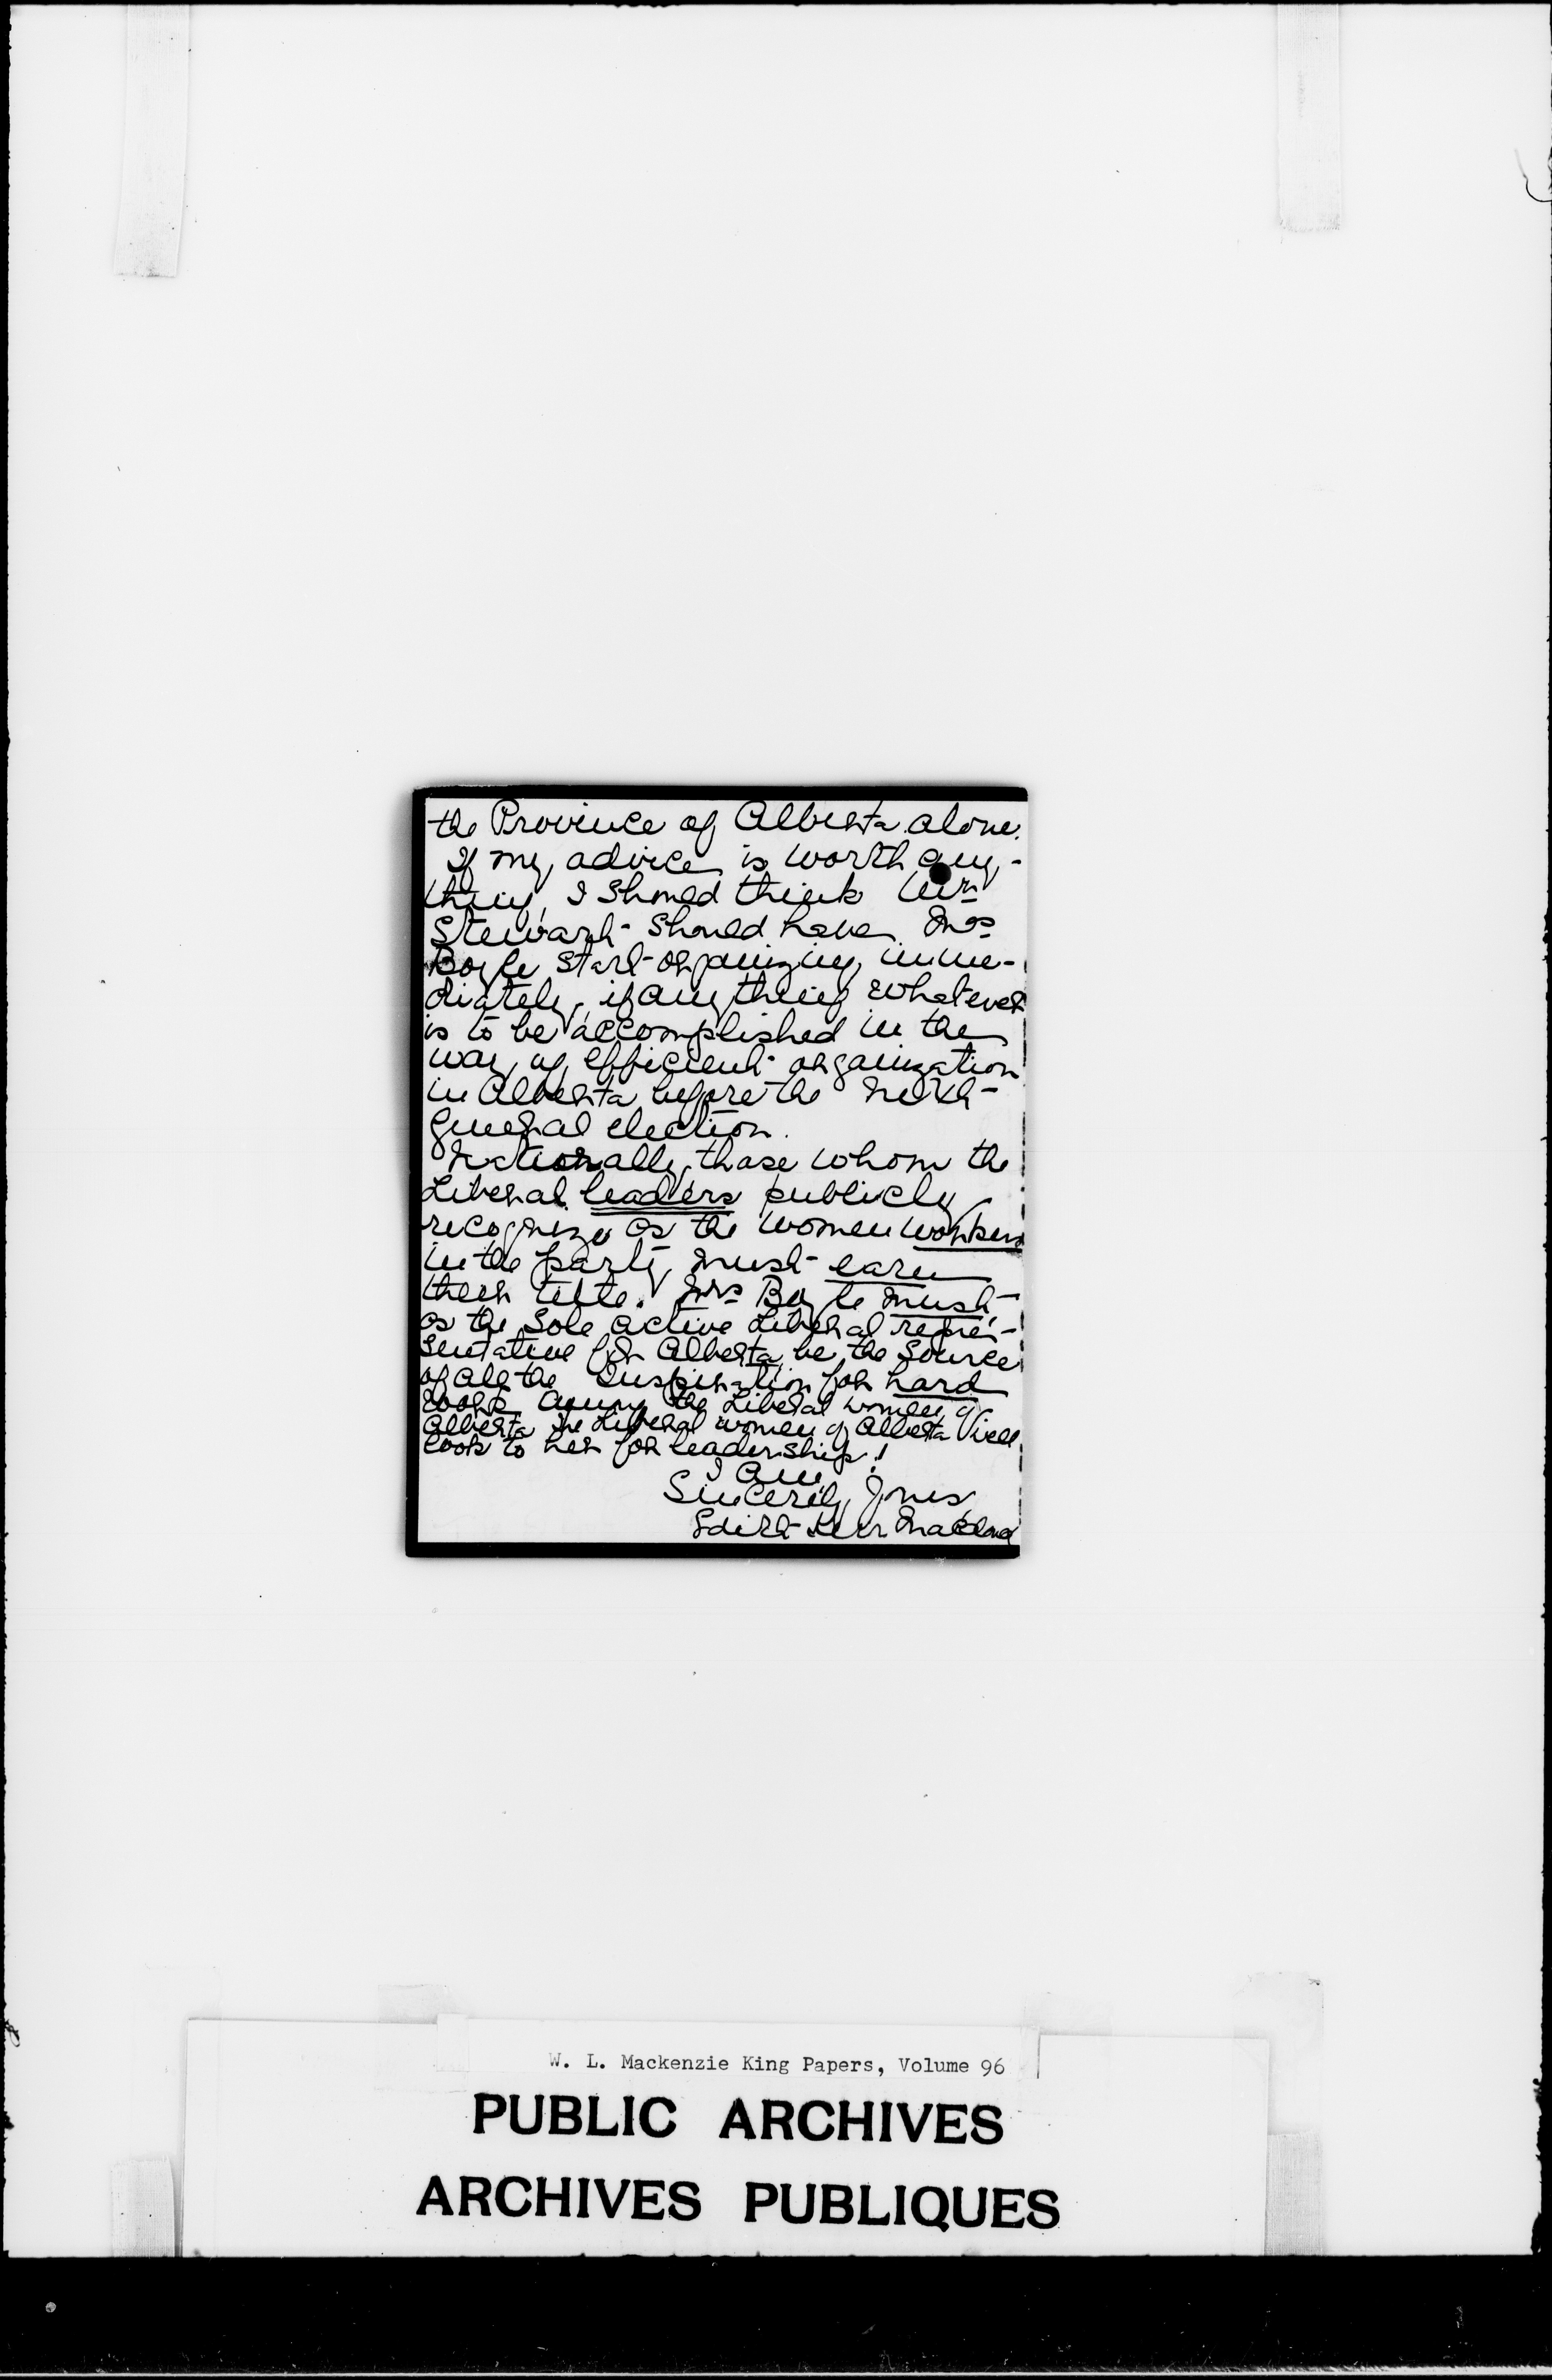 the Province of Alberta alone.
If my advice is worth any-
thing, I should think Mr
Stewart should have Mrs
Boyle start organizing imme-
diately, if anything whatever
is to be accomplished in the
way of efficient organization
in Alberta before the next
general election.
Nationally, those whom the
Liberal leaders publicly
recognize as the women workers
in the party must earn
their title. Mrs Boyle must,
as the sole active Liberal repre-
sentative for Alberta, be the source
of all the inspiration for hard
work among the Liberal women of
Alberta. The Liberal women of Alberta will
look to her for leadership!
I am,
Sincerely Yours
Edith Kerr
W. L. Mackenzie King Papers, Volume 96
PUBLIC ARCHIVES
ARCHIVES PUBLIQUES